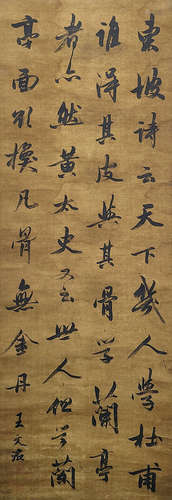 東坡詩云天下幾人學杜甫
誰得其皮與其骨學蘭亭
者亦然黃太史又云世人但學蘭
亭面欲換凡骨無金丹王文治